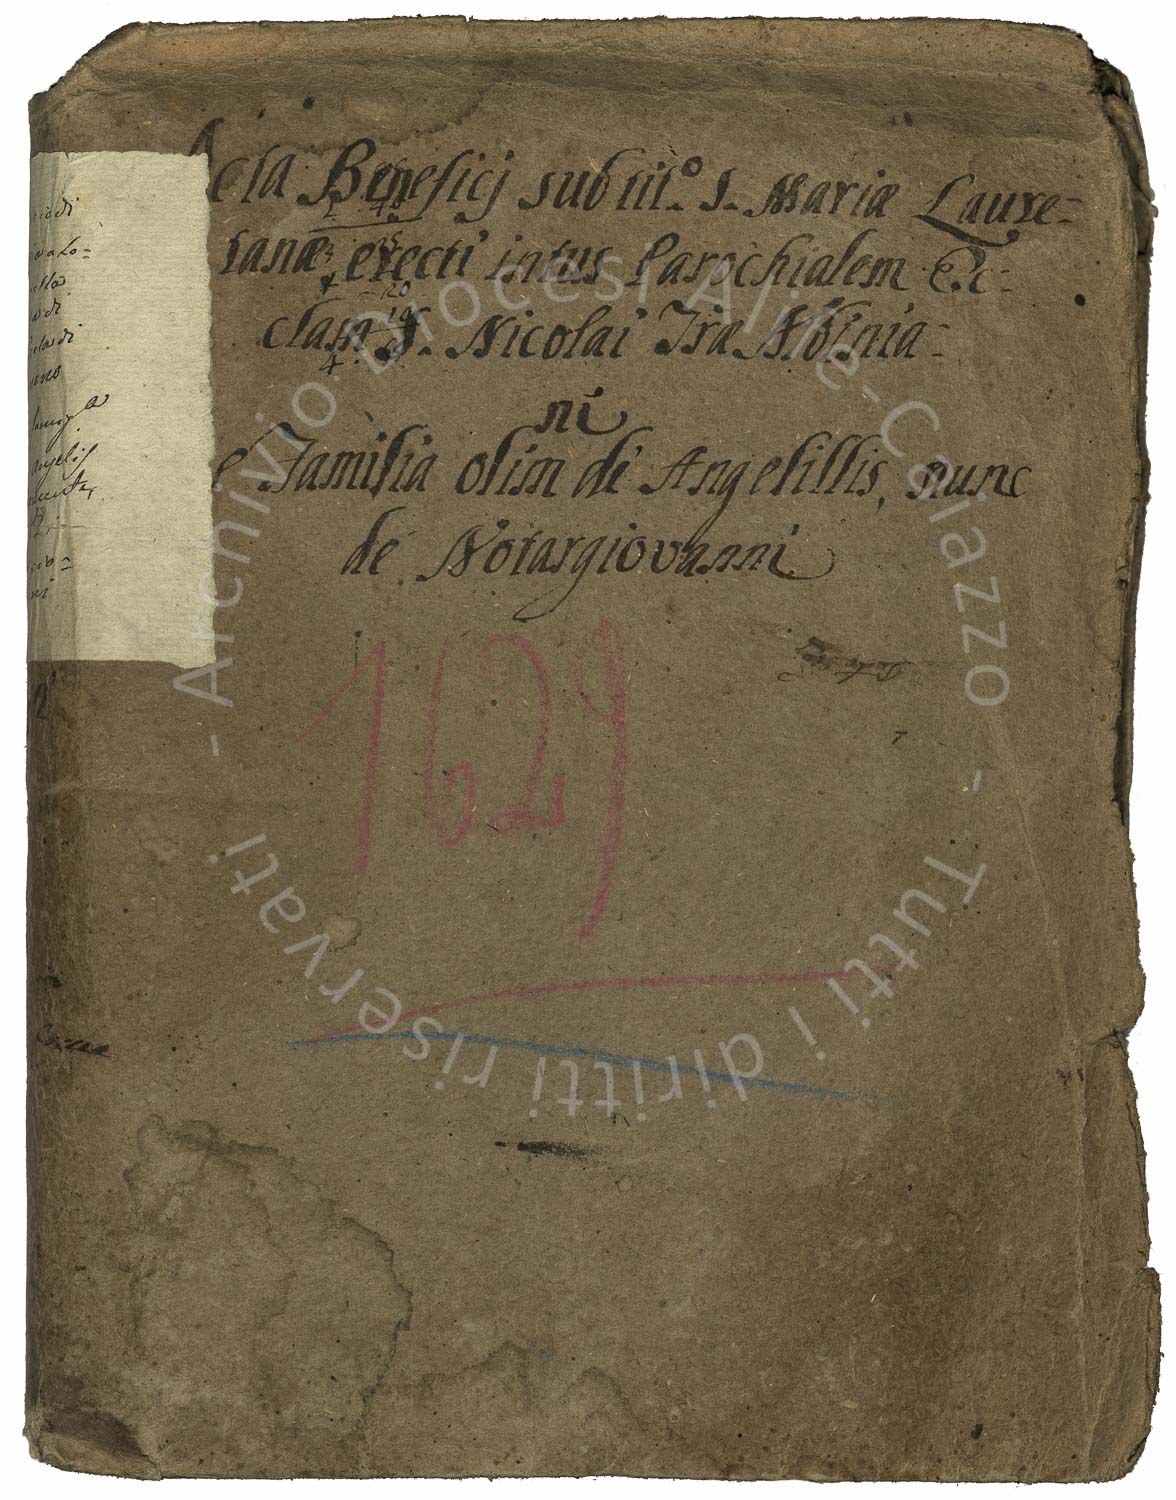 Acta Beneficij sub tit.o S. Mariæ Laure-
tanæ erecti intus Parochialem Ec-
clam S. Nicolai Træ Alvinia-
ni
e Familia olim de Angelillis, nunc
de Notargiovanni
1629
di
Lo-
di
di
nno
- Archivio Diocesi Alife-Caiazzo - Tutti i diritti riservati